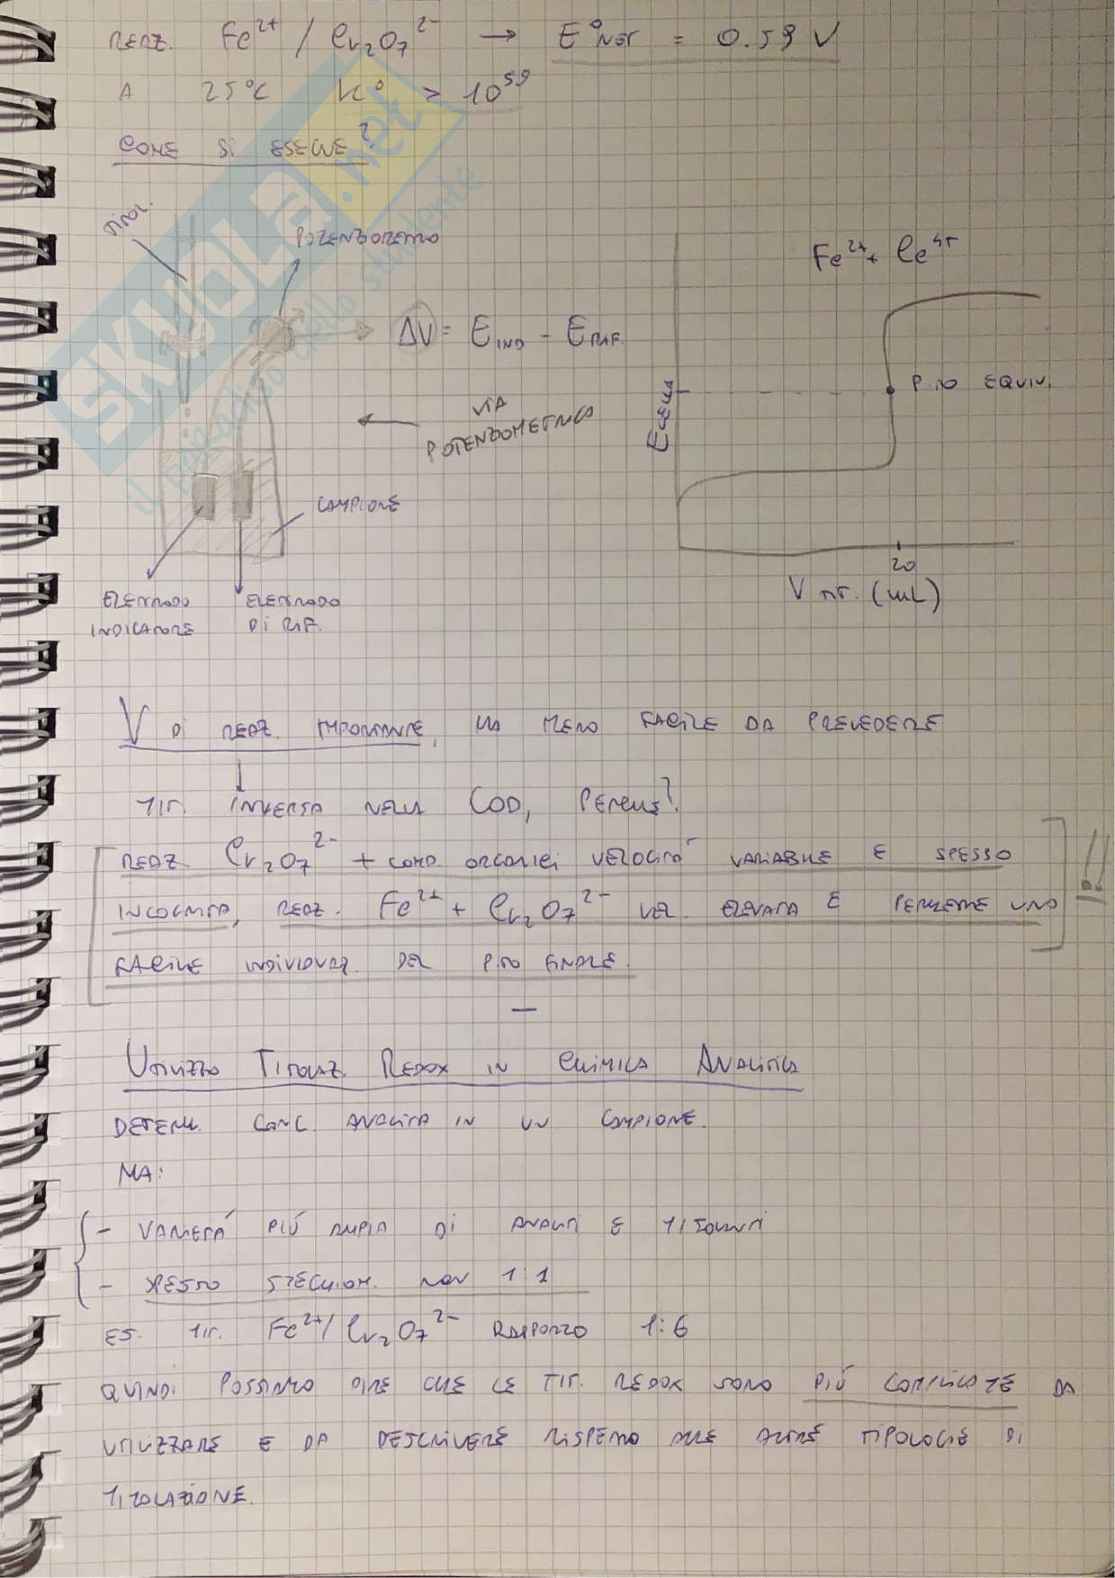 REAZ. Fe²⁺ / Cr₂O₇²⁻ → E°NET = 0.59 V
A 25°C K° > 10⁵⁹
COME SI ESEGUE?
TITOL.
POTENZIOMETRO
ΔV = E IND - E RIF.
VIA
POTENZIOMETRICA
CAMPIONE
ELETTRODO
INDICATORE
ELETTRODO
DI RIF.
Fe²⁺ + Ce⁴⁺
P.TO EQUIV.
E CELLA
20
V TIT. (mL)
SKUOLA.net
V DI REAZ. IMPORTANTE, MA MENO FACILE DA PREVEDERE
↓
TIT. INVERSA NELLA COD, PERCHÈ?
REAZ. Cr₂O₇²⁻ + COMP. ORGANICI VELOCITÀ VARIABILE E SPESSO !!
INCOGNITA, REAZ. Fe²⁺ + Cr₂O₇²⁻ VEL. ELEVATA E PERMETTE UNA
FACILE INDIVIDUAZ. DEL P.TO FINALE.
—
UTILIZZO TITOLAZ. REDOX IN CHIMICA ANALITICA
DETERM. CONC. ANALITA IN UN CAMPIONE.
MA:
- VARIETÀ PIÙ AMPIA DI ANALITI E TITOLANTI
- SPESSO STECHIOM. NON 1:1
ES. TIT. Fe²⁺/Cr₂O₇²⁻ RAPPORTO 1:6
QUINDI POSSIAMO DIRE CHE LE TIT. REDOX SONO PIÙ COMPLICATE DA
UTILIZZARE E DA DESCRIVERE RISPETTO ALLE ALTRE TIPOLOGIE DI
TITOLAZIONE.